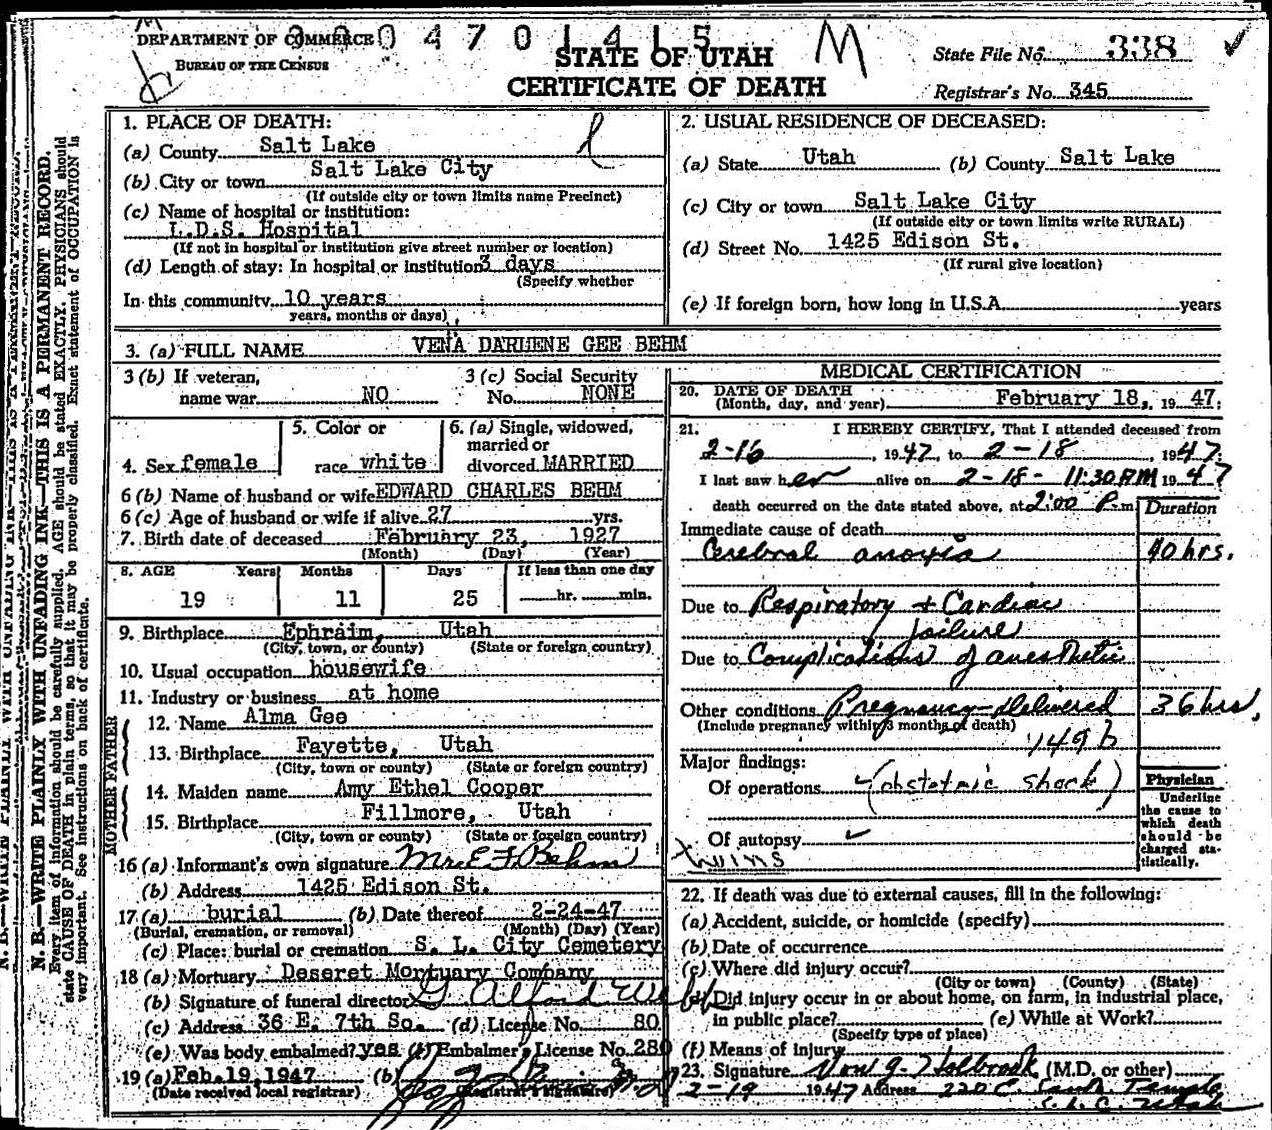 DEPARTMENT OF COMMERCE
BUREAU OF THE CENSUS
00 4 7 0 1 4 1 5
M
STATE OF UTAH
CERTIFICATE OF DEATH
State File No. 338 ✓
Registrar's No. 345
N. B.—WRITE PLAINLY WITH UNFADING INK—THIS IS A PERMANENT RECORD.
Every item of information should be carefully supplied. AGE should be stated EXACTLY. PHYSICIANS should
state CAUSE OF DEATH in plain terms, so that it may be properly classified. Exact statement of OCCUPATION is
very important. See instructions on back of certificate.
1. PLACE OF DEATH:
(a) County Salt Lake
(b) City or town Salt Lake City
(If outside city or town limits name Precinct)
(c) Name of hospital or institution:
L.D.S. Hospital
(If not in hospital or institution give street number or location)
(d) Length of stay: In hospital or institution 3 days
(Specify whether
In this community 10 years
years, months or days)
2. USUAL RESIDENCE OF DECEASED:
(a) State Utah (b) County Salt Lake
(c) City or town Salt Lake City
(If outside city or town limits write RURAL)
(d) Street No. 1425 Edison St.
(If rural give location)
(e) If foreign born, how long in U.S.A. years
3. (a) FULL NAME VENA DARLENE GEE BEHM
3 (b) If veteran, name war NO
3 (c) Social Security No. NONE
4. Sex female
5. Color or race white
6. (a) Single, widowed, married or divorced MARRIED
6 (b) Name of husband or wife EDWARD CHARLES BEHM
6 (c) Age of husband or wife if alive 27 yrs.
7. Birth date of deceased February 23, 1927
(Month) (Day) (Year)
8. AGE Years Months Days If less than one day
19 11 25 hr. min.
9. Birthplace Ephraim, Utah
(City, town, or county) (State or foreign country)
10. Usual occupation housewife
11. Industry or business at home
FATHER
12. Name Alma Gee
13. Birthplace Fayette, Utah
(City, town or county) (State or foreign country)
MOTHER
14. Maiden name Amy Ethel Cooper
15. Birthplace Fillmore, Utah
(City, town or county) (State or foreign country)
16 (a) Informant's own signature Mr E F Behm
(b) Address 1425 Edison St.
17 (a) burial (b) Date thereof 2-24-47
(Burial, cremation, or removal) (Month) (Day) (Year)
(c) Place: burial or cremation S. L. City Cemetery
18 (a) Mortuary Deseret Mortuary Company
(b) Signature of funeral director G Alford
(c) Address 36 E. 7th So. (d) License No. 80
(e) Was body embalmed? yes (f) Embalmer's License No. 280
19 (a) Feb. 19, 1947 (b)
(Date received local registrar) (Registrar's signature)
MEDICAL CERTIFICATION
20. DATE OF DEATH
(Month, day, and year) February 18, 19 47.
21. I HEREBY CERTIFY, That I attended deceased from
2-16, 1947, to 2-18, 1947.
I last saw her alive on 2-18- 11:30 AM 1947
death occurred on the date stated above, at 2:00 P.m.
Duration
Immediate cause of death
Cerebral anoxia 40 hrs.
Due to Respiratory + Cardiac
failure
Due to Complications of anesthetic
Other conditions Pregnancy-delivered 36 hrs.
(Include pregnancy within 3 months of death)
149b
Major findings:
Of operations ✓ (obstetric shock)
Of autopsy ✓
twins
Physician
Underline
the cause to
which death
should be
charged sta-
tistically.
22. If death was due to external causes, fill in the following:
(a) Accident, suicide, or homicide (specify)
(b) Date of occurrence
(c) Where did injury occur?
(City or town) (County) (State)
(d) Did injury occur in or about home, on farm, in industrial place,
in public place? (e) While at Work?
(Specify type of place)
(f) Means of injury
23. Signature Von G. Holbrook (M.D. or other)
2-19 1947 Address 220 E. South Temple
S. L. C. Utah